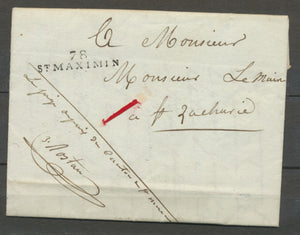 A Monsieur
78
ST MAXIMIN
Monsieur Le Maire
à St Zacharie
Le juge de du Canton
Rostan